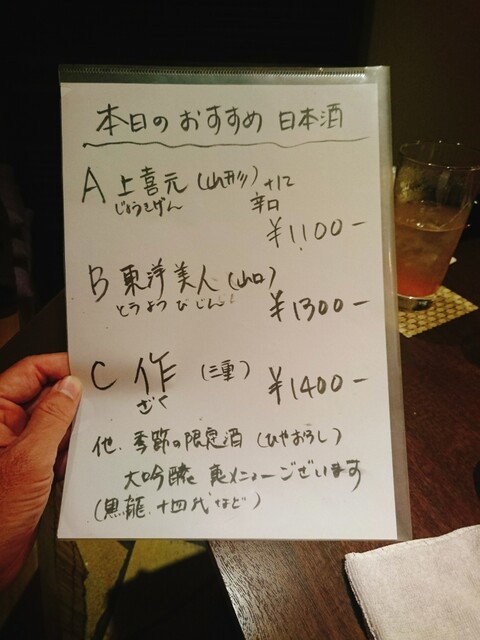 本日のおすすめ 日本酒
A 上喜元(山形) +12
じょうきげん 辛口
¥1100-
B 東洋美人(山口)
とうようびじん ¥1300-
C 作 (三重) ¥1400-
ざく
他、季節の限定酒(ひやおろし)
大吟醸 裏メニューございます
(黒龍、十四代など)